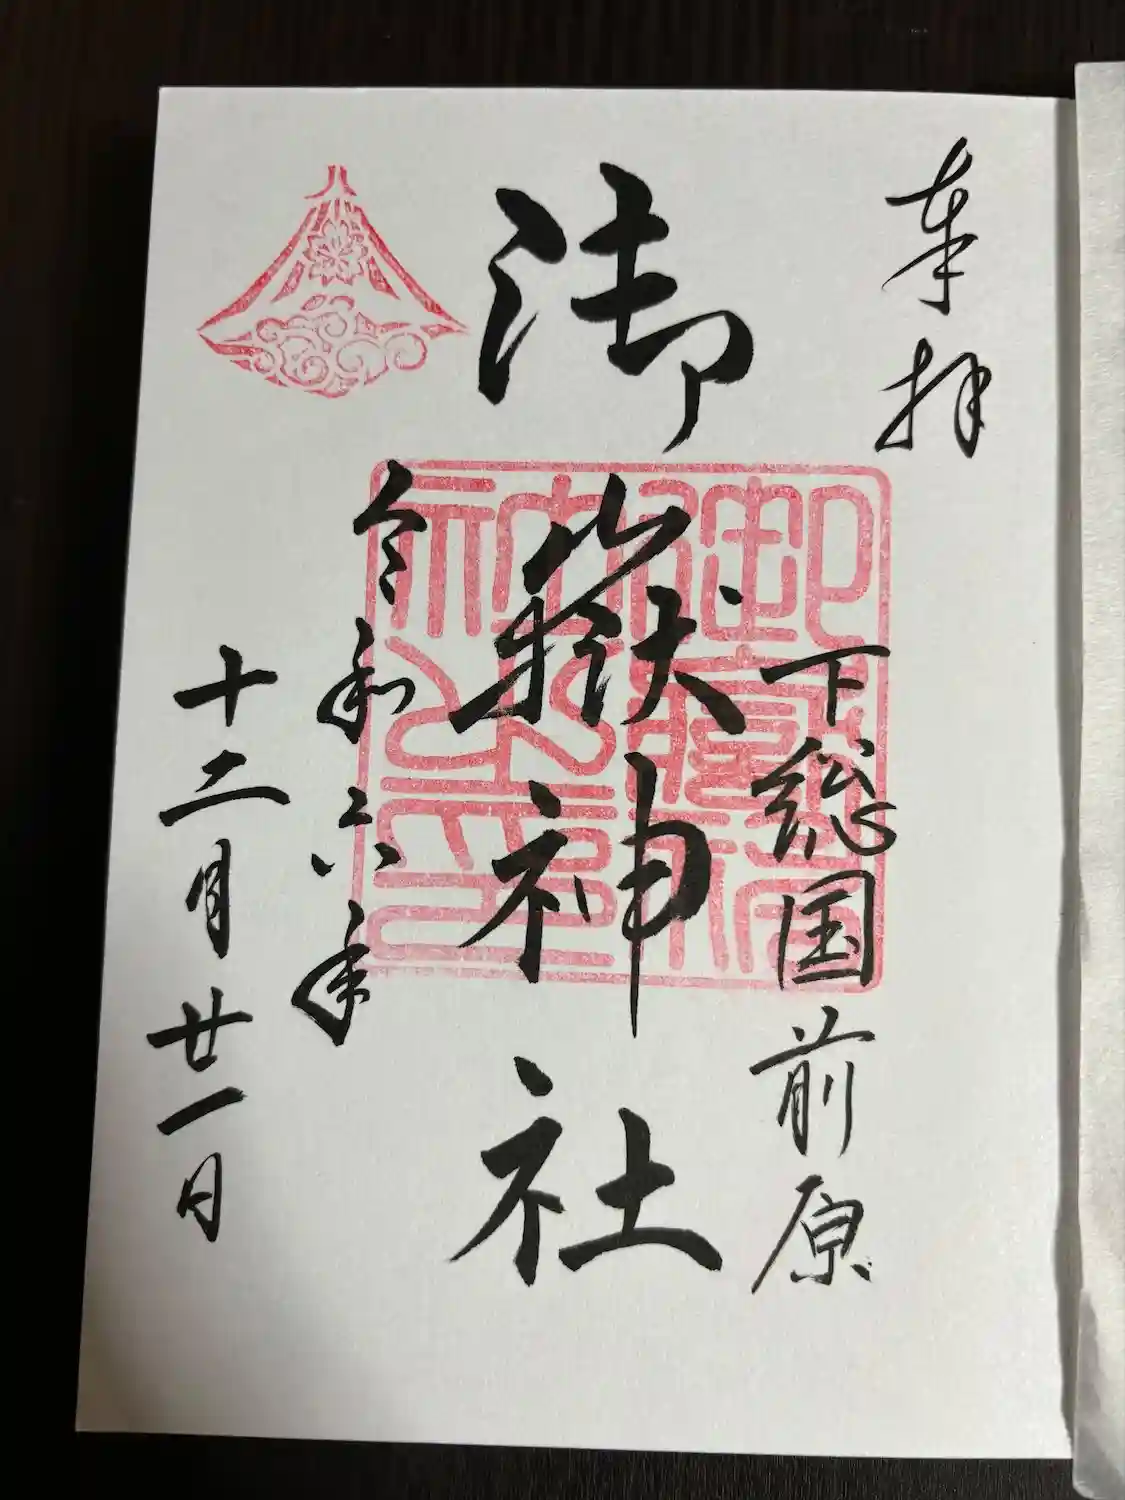 奉拝
下総国前原
御嶽神社
令和六年
十二月廿一日